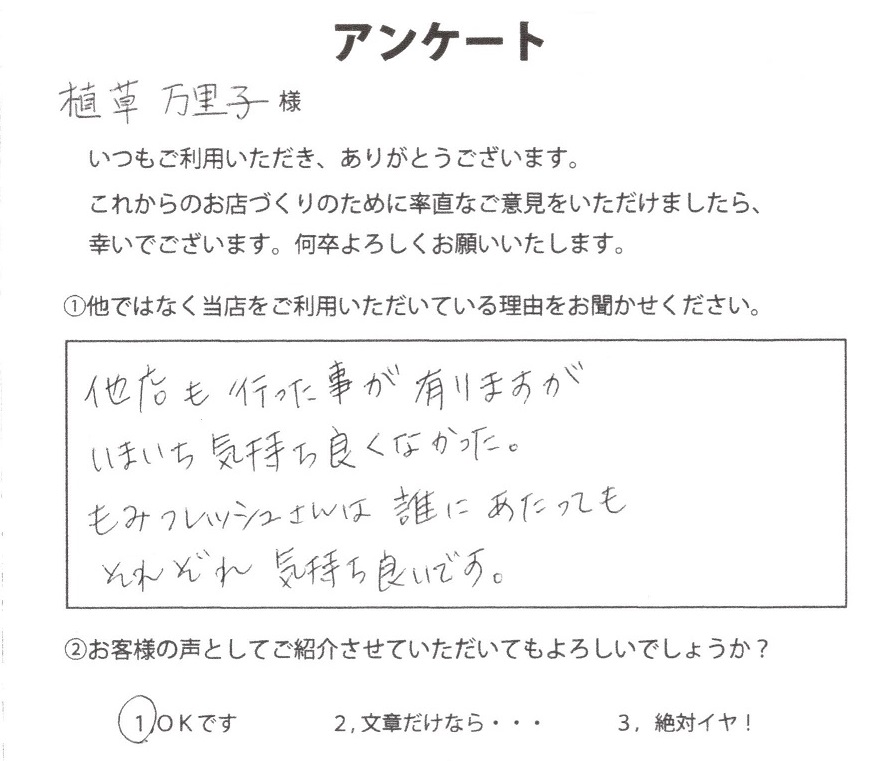 アンケート
植草 万里子 様
いつもご利用いただき、ありがとうございます。
これからのお店づくりのために率直なご意見をいただけましたら、
幸いでございます。何卒よろしくお願いいたします。
①他ではなく当店をご利用いただいている理由をお聞かせください。
他店も 行った事が 有りますが
いまいち 気持ち良くなかった。
もみフレッシュさんは 誰に あたっても
それぞれ 気持ち良いです。
②お客様の声としてご紹介させていただいてもよろしいでしょうか？
1,OKです 2,文章だけなら・・・ 3, 絶対イヤ！